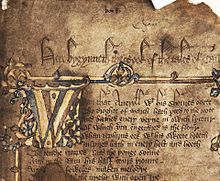 Here bygynneth the Book of the tales of Caunt
Whan that Aueryll wt his shoures soote
The droghte of March hath perced to the roote
And bathed euery veyne in swich licour
Of which vertu engendred is the flour
Whan Zephirus eek wt his swete breeth
Inspired hath in euery holt and heeth
The tendre croppes and the yonge sonne
Hath in the Ram his half cours yronne
And foweles maken melodye
nyght with open